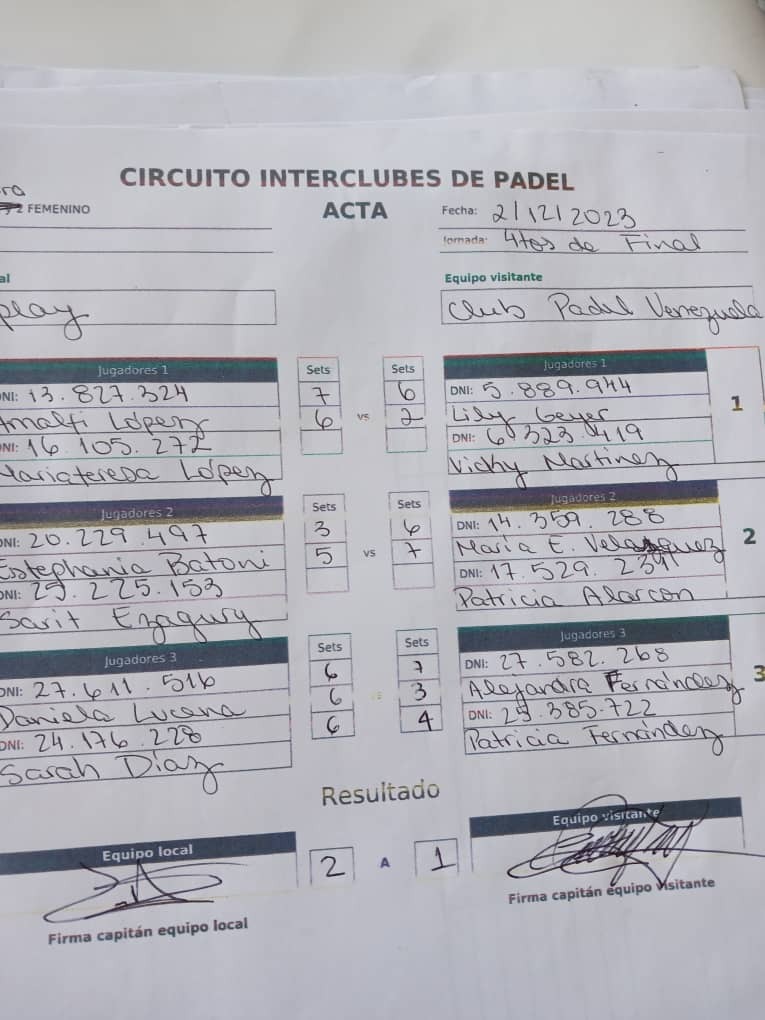 CIRCUITO INTERCLUBES DE PADEL
ra
2 FEMENINO
ACTA
Fecha: 2/12/2023
Jornada: 4tos de Final
al
Equipo visitante
play
Club Padel Venezuela
Jugadores 1 Sets Sets Jugadores 1
NI: 13.827.324 7 6 DNI: 5.889.944
Amalfi López 6 vs 2 Lily Geyer 1
NI: 16.105.272 DNI: 6.323.419
Mariateresa López Vicky Martinez
Jugadores 2 Sets Sets Jugadores 2
NI: 20.229.497 3 6 DNI: 14.359.288
Estephania Batoni 5 vs 7 Maria E. Velasquez 2
DNI: 25.225.153 DNI: 17.529.2341
Sarit Ezagury Patricia Alarcon
Jugadores 3 Sets Sets Jugadores 3
DNI: 27.611.516 6 7 DNI: 27.582.268
Daniela Lucena 6 3 Alejandra Fernández 3
DNI: 24.176.228 6 4 DNI: 25.385.722
Sarah Díaz Patricia Fernández
Resultado
Equipo local 2 A 1 Equipo visitante
Firma capitán equipo local
Firma capitán equipo visitante